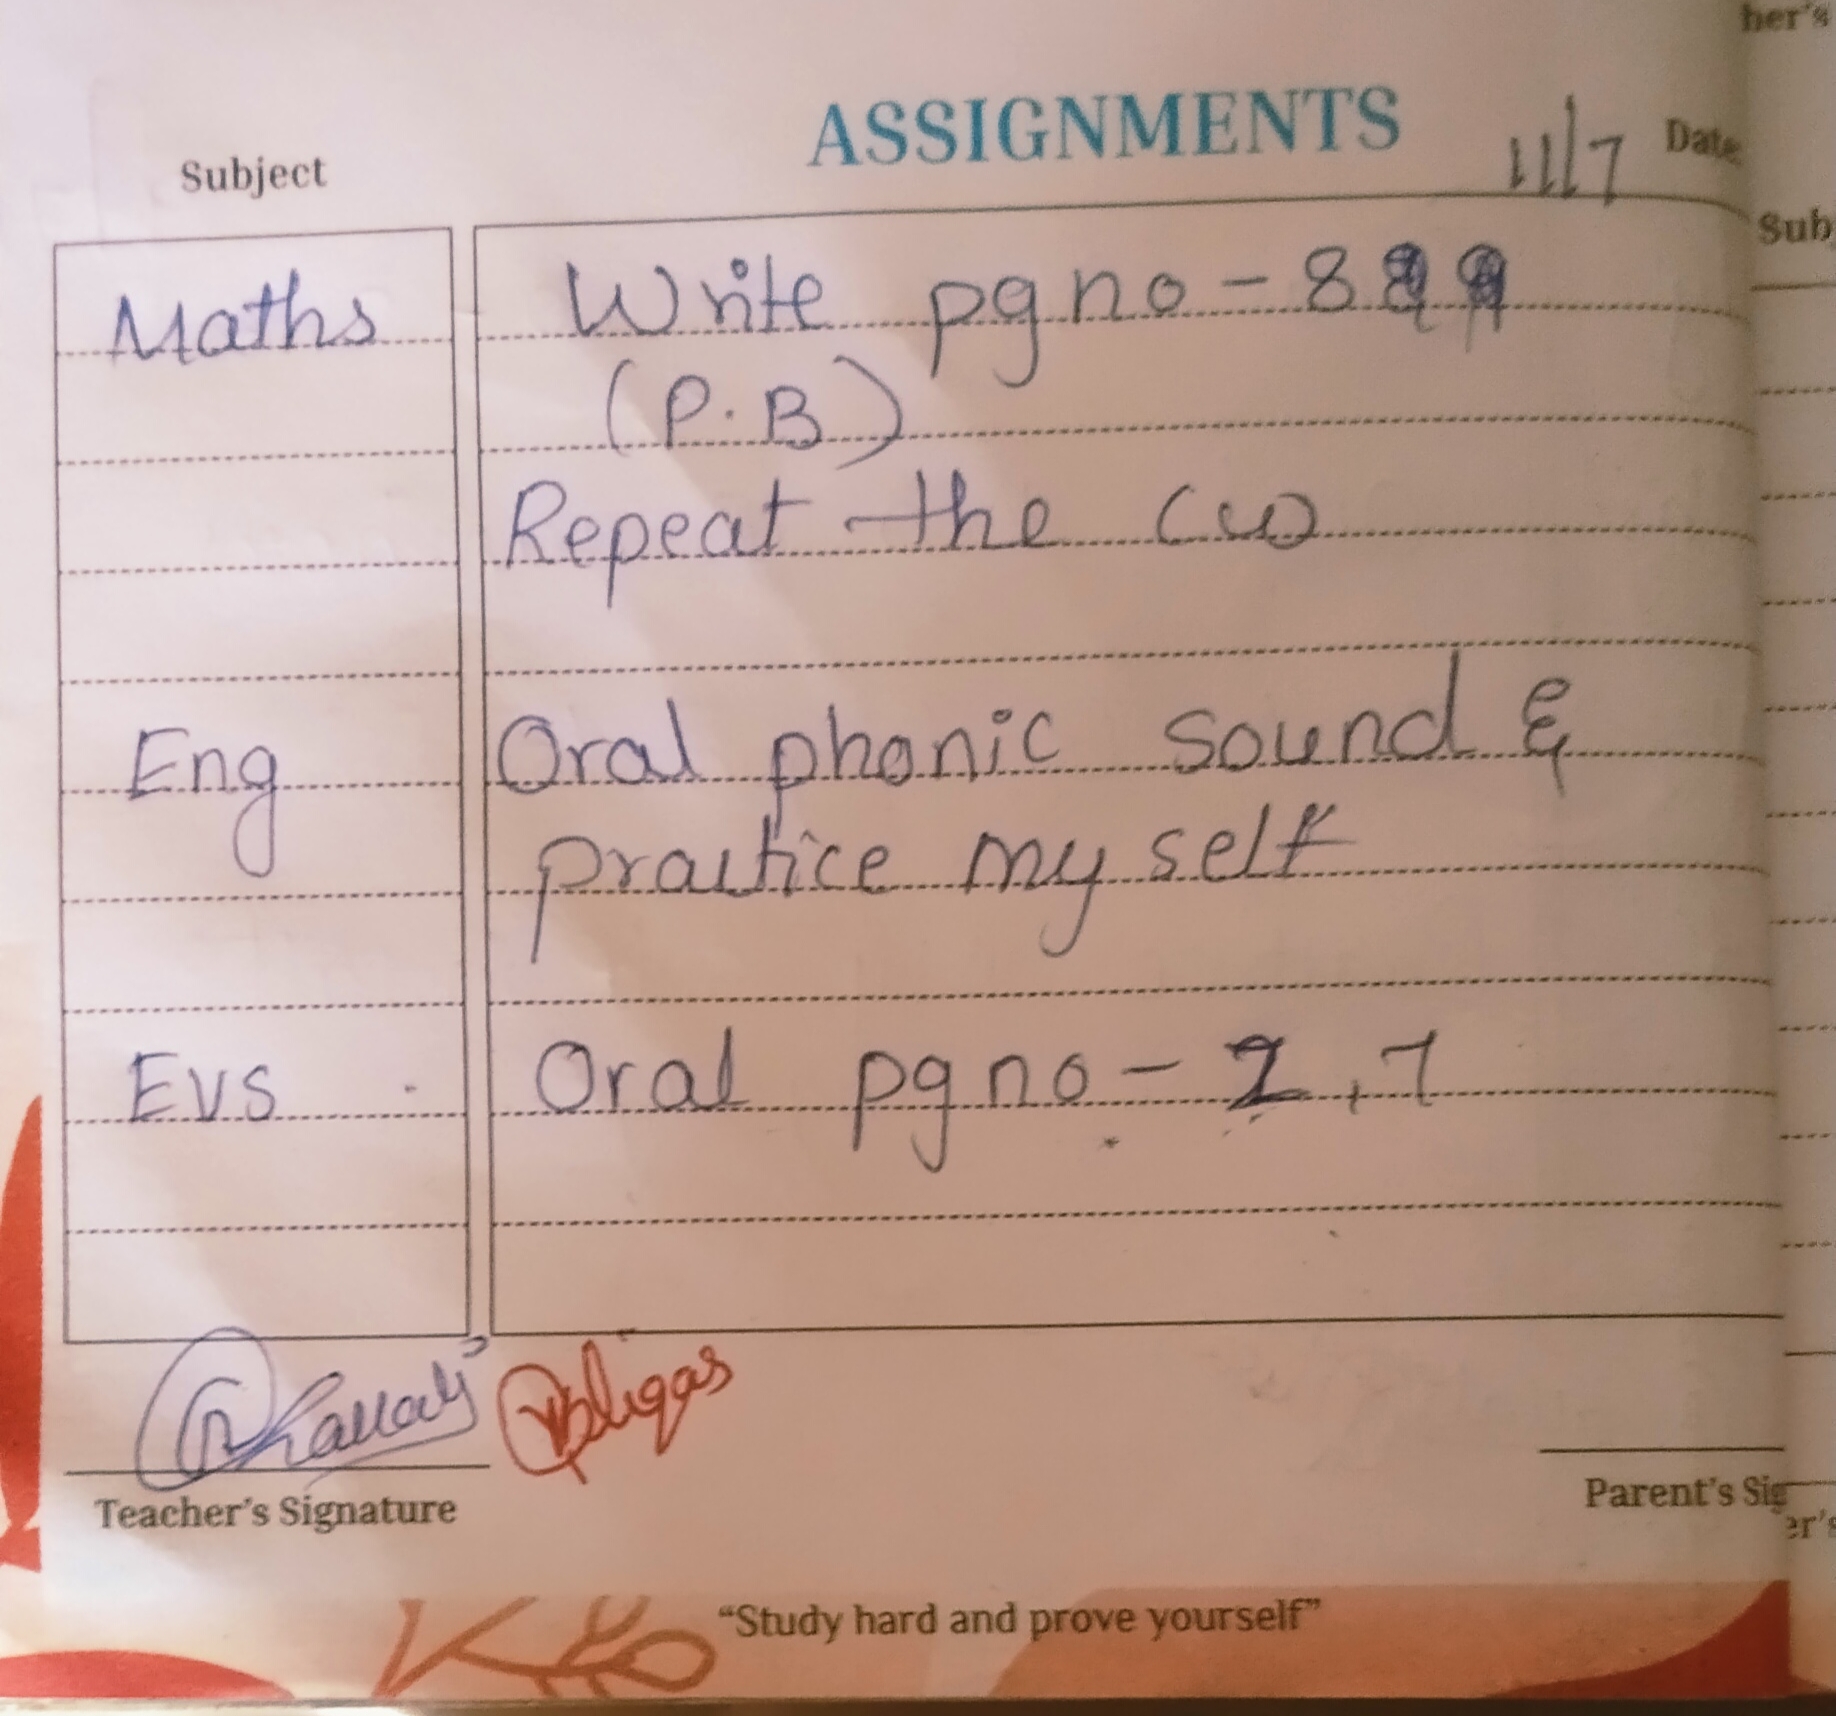 her's
ASSIGNMENTS
Subject
11/7 Date
Sub
Maths Write pg no - 8
(P.B)
Repeat the CW
Eng Oral phonic sound &
practice my self
Evs Oral pg no - 2, 7
Teacher's Signature
Parent's Sig
er's
"Study hard and prove yourself"